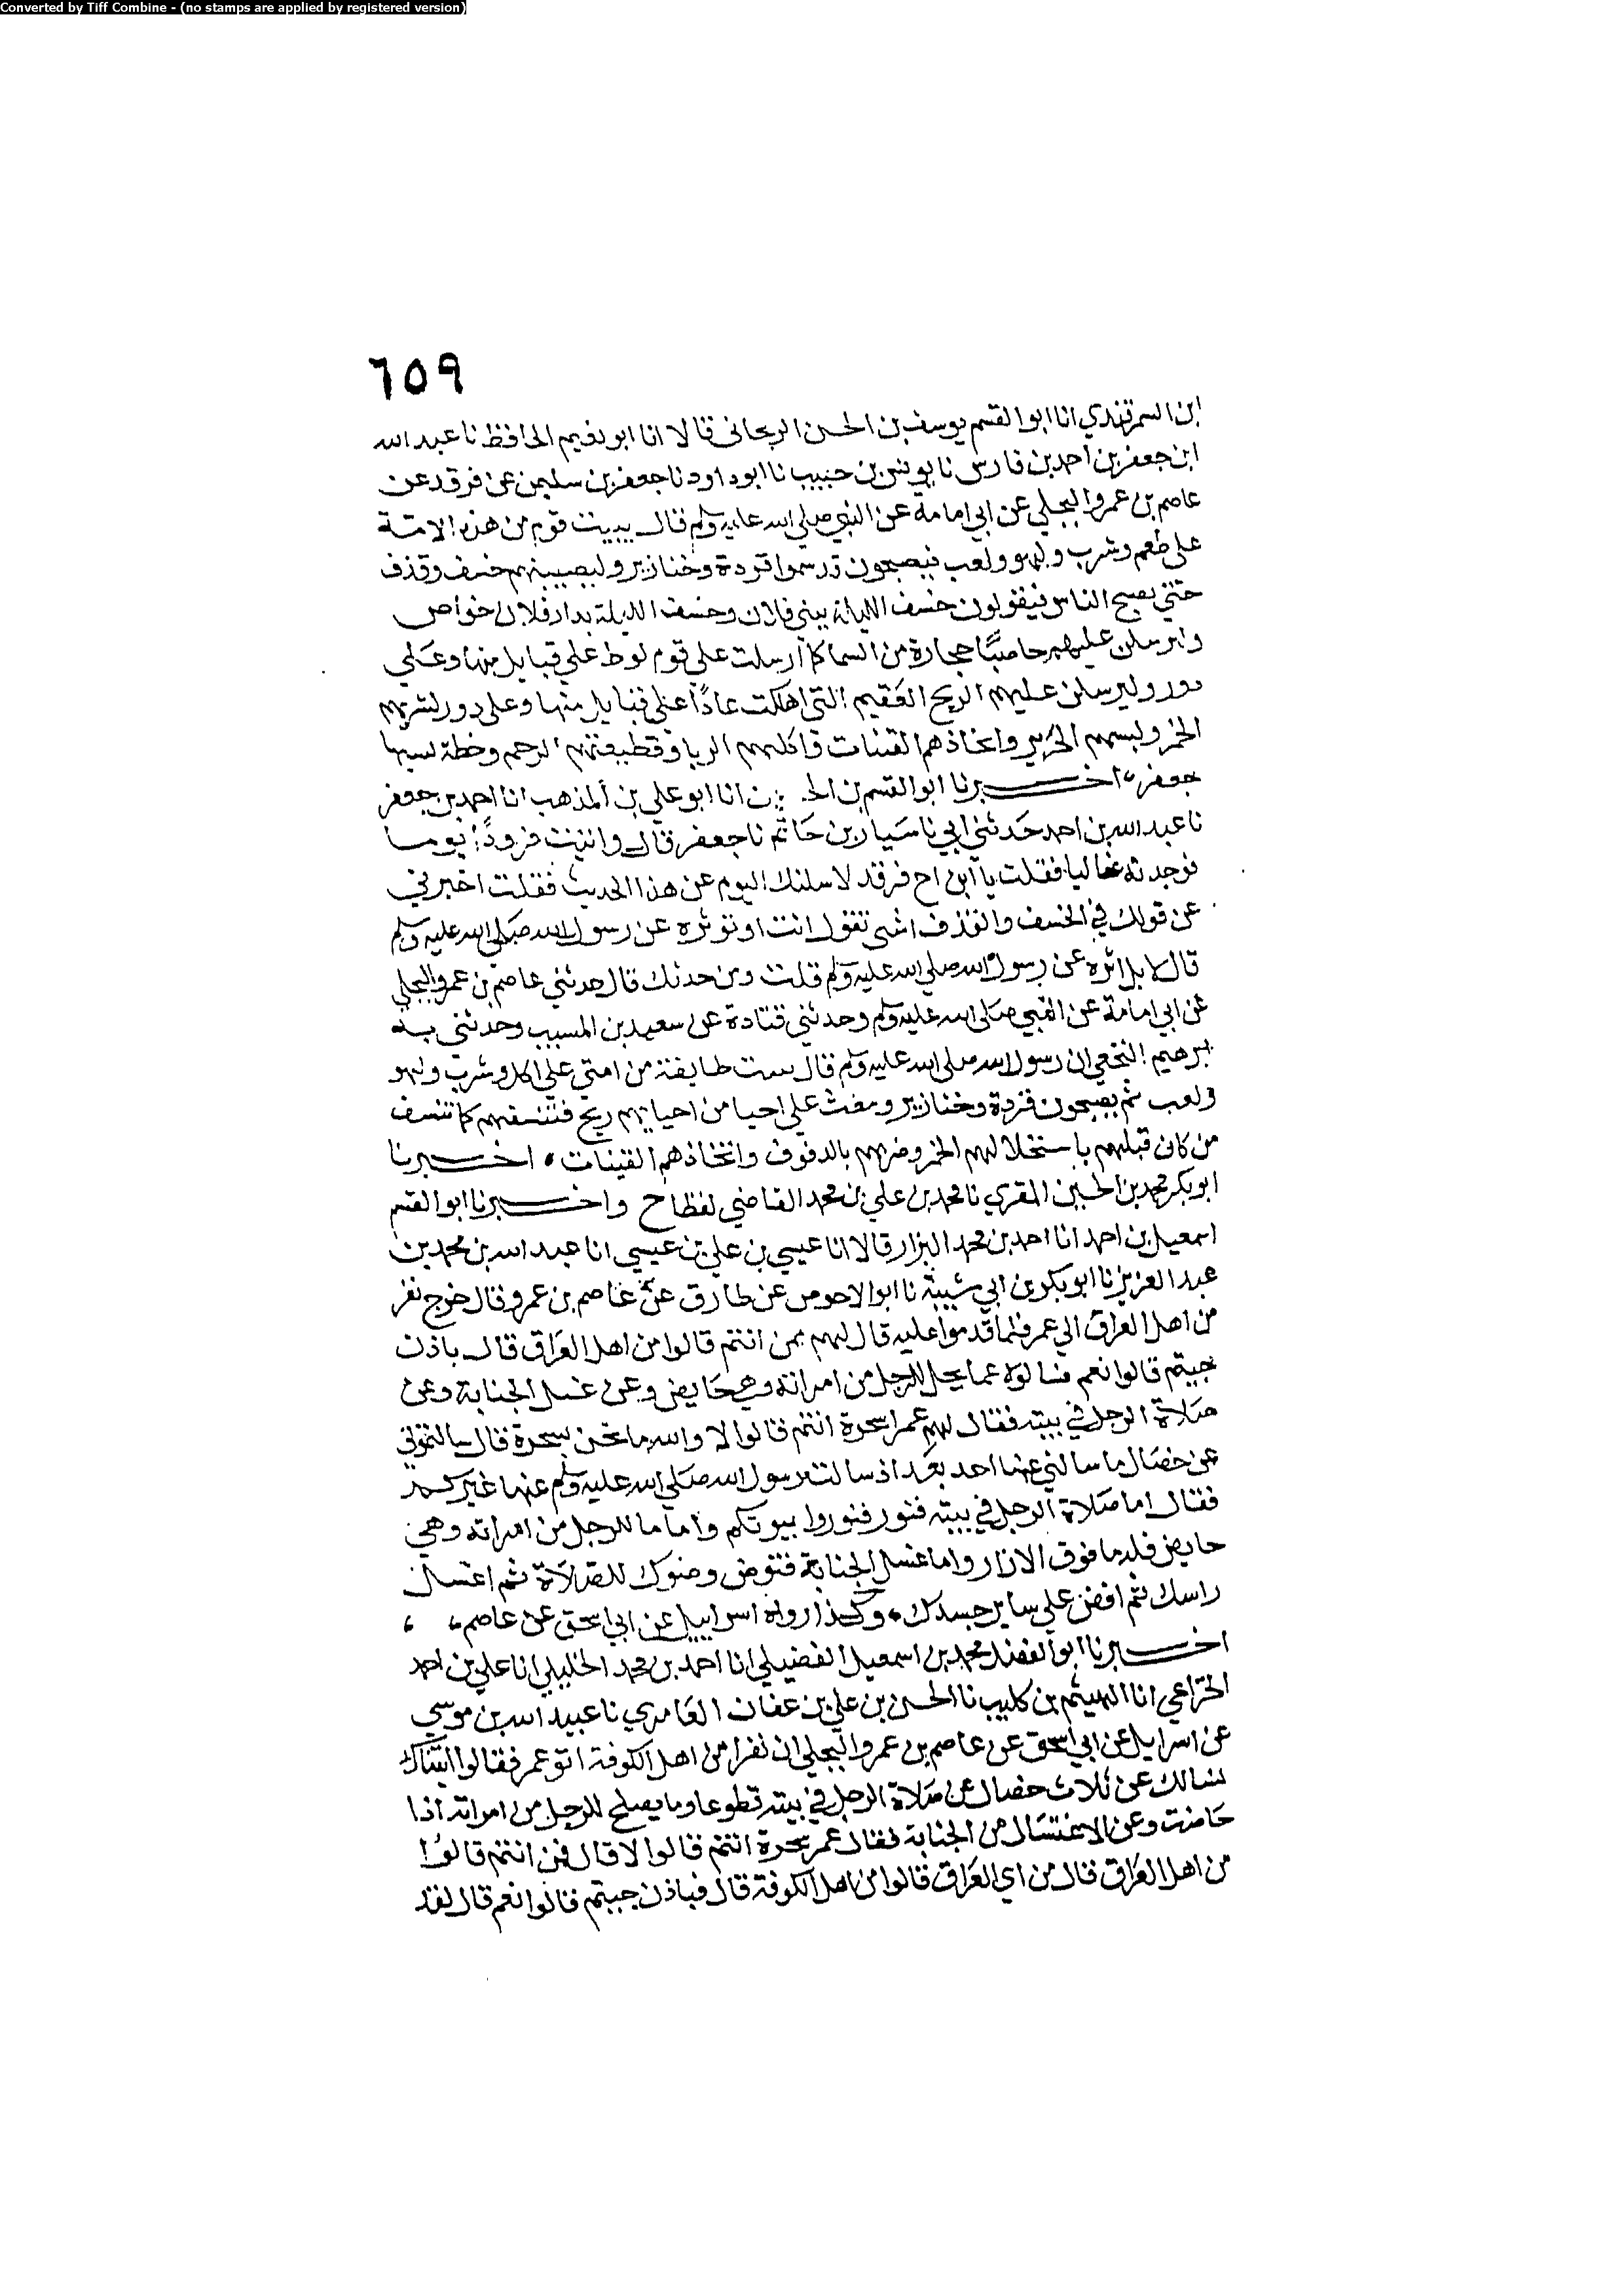 Converted by Tiff Combine - (no stamps are applied by registered version)
٦٥٩
ابن السمرقندي انا ابو القسم يوسف بن الحسن الزنجانى قالا انا ابو نعيم الحافظ نا عبد الله
ابن جعفر بن احمد بن فارس نا يونس بن حبيب نا ابو داود نا جعفر بن سليمن عن فرقد عن
عاصم بن عمرو البجلي عن ابي امامة عن النبي صلي الله عليه وسلم قال يبيت قوم من هذه الامة
على طعم وشرب ولهو ولعب فيصبحون قد مسخوا قردة وخنازير وليصيبنهم خسف وقذف
حتي يصبح الناس فيقولون خسف الليلة ببني فلان وخسف الليلة بدار فلان خواص
وليرسلن عليهم حاصبًا حجارة من السما كما ارسلت على قوم لوط علي قبايل منها وعلي
دور وليرسلن عليهم الريح العقيم التي اهلكت عادًا علي قبايل منها وعلى دور لشربهم
الخمر ولبسهم الحرير واتخاذهم القينات واكلهم الربا وقطيعتهم الرحم وخطة نسيها
جعفر اخـــبرنا ابو القسم بن الحـ ـن انا ابو علي بن المذهب انا احمد بن جعفر
نا عبد الله بن احمد حدثني ابي نا سيار بن حاتم نا جعفر قال واتيت فرقدًا يوما
فوجدته خاليا فقلت يا ابن ام فرقد لاسلنك اليوم عن هذا الحديث فقلت اخبرني
عن قولك في الخسف والقذف اشي تقول انت او توثره عن رسول الله صلي الله عليه وسلم
قال لا بل اثره عن رسول الله صلي الله عليه وسلم قلت ومن حدثك قال حدثني عاصم بن عمرو البجلي
عن ابي امامة عن النبي صلى الله عليه وسلم وحدثني قتادة عن سعيد بن المسيب وحدثني به
ابرهيم النخعي ان رسول الله صلى الله عليه وسلم قال يبيت طايفة من امتي علي اكل وشرب ولهو
ولعب ثم يصبحون قردة وخنازير ويبعث علي احيا من احيايهم ريح فتنسفهم كما تنسف
من كان قبلهم باستحلالهم الخمر وضربهم بالدفوف واتخاذهم القينات اخـــبرنا
ابو بكر محمد بن الحسين المقري نا محمد بن علي بن محمد القاضي لفظا ح واخـــبرنا ابو القسم
اسمعيل بن احمد انا احمد بن محمد البزار قالا انا عيسي بن علي بن عيسي انا عبد الله بن محمد بن
عبد العزيز نا ابو بكر بن ابي شيبة نا ابو الاحوص عن طارق عن عاصم بن عمرو قال خرج نفر
من اهل العراق الي عمر فلما قدموا عليه قال لهم ممن انتم قالوا من اهل العراق قال باذن
جيتم قالوا نعم فسالوه عما يحل للرجل من امراته وهي حايض وعن غسل الجنابة وعن
صلاة الرجل في بيته فقال لهم عمر اسحرة انتم قالوا لا والله ما نحن بسحرة قال سالتموني
عن خصال ما سالني عنها احد بعد اذ سالت رسول الله صلي الله عليه وسلم عنها غيركم
فقال اما صلاة الرجل في بيته فنور فنوروا بيوتكم واما ما للرجل من امراته وهي
حايض فله ما فوق الازار واما غسل الجنابة فتوض وضوك للصلاة ثم اغسل
راسك ثم افض علي ساير جسدك وكذا رواه اسراييل عن ابي اسحق عن عاصم
اخـــبرنا ابو الفضل محمد بن اسمعيل الفضيلي انا احمد بن محمد الخليلي انا علي بن احمد
الخزاعي انا الهيثم بن كليب نا الحسن بن علي بن عفان العامري نا عبيد الله بن موسي
عن اسرايل عن ابي اسحق عن عاصم بن عمرو البجلي ان نفرا من اهل الكوفة اتو عمر فقالوا اتيناك
نسالك عن ثلاث خصال عن صلاة الرجل في بيته تطوعا وما يصلح للرجل من امراته اذا
حاضت وعن الاغتسال من الجنابة فقال عمر سحرة انتم قالوا لا قال فمن انتم قالوا
من اهل العراق قال من اي العراق قالوا من اهل الكوفة قال فباذن جيتم قالوا نعم قال لقد